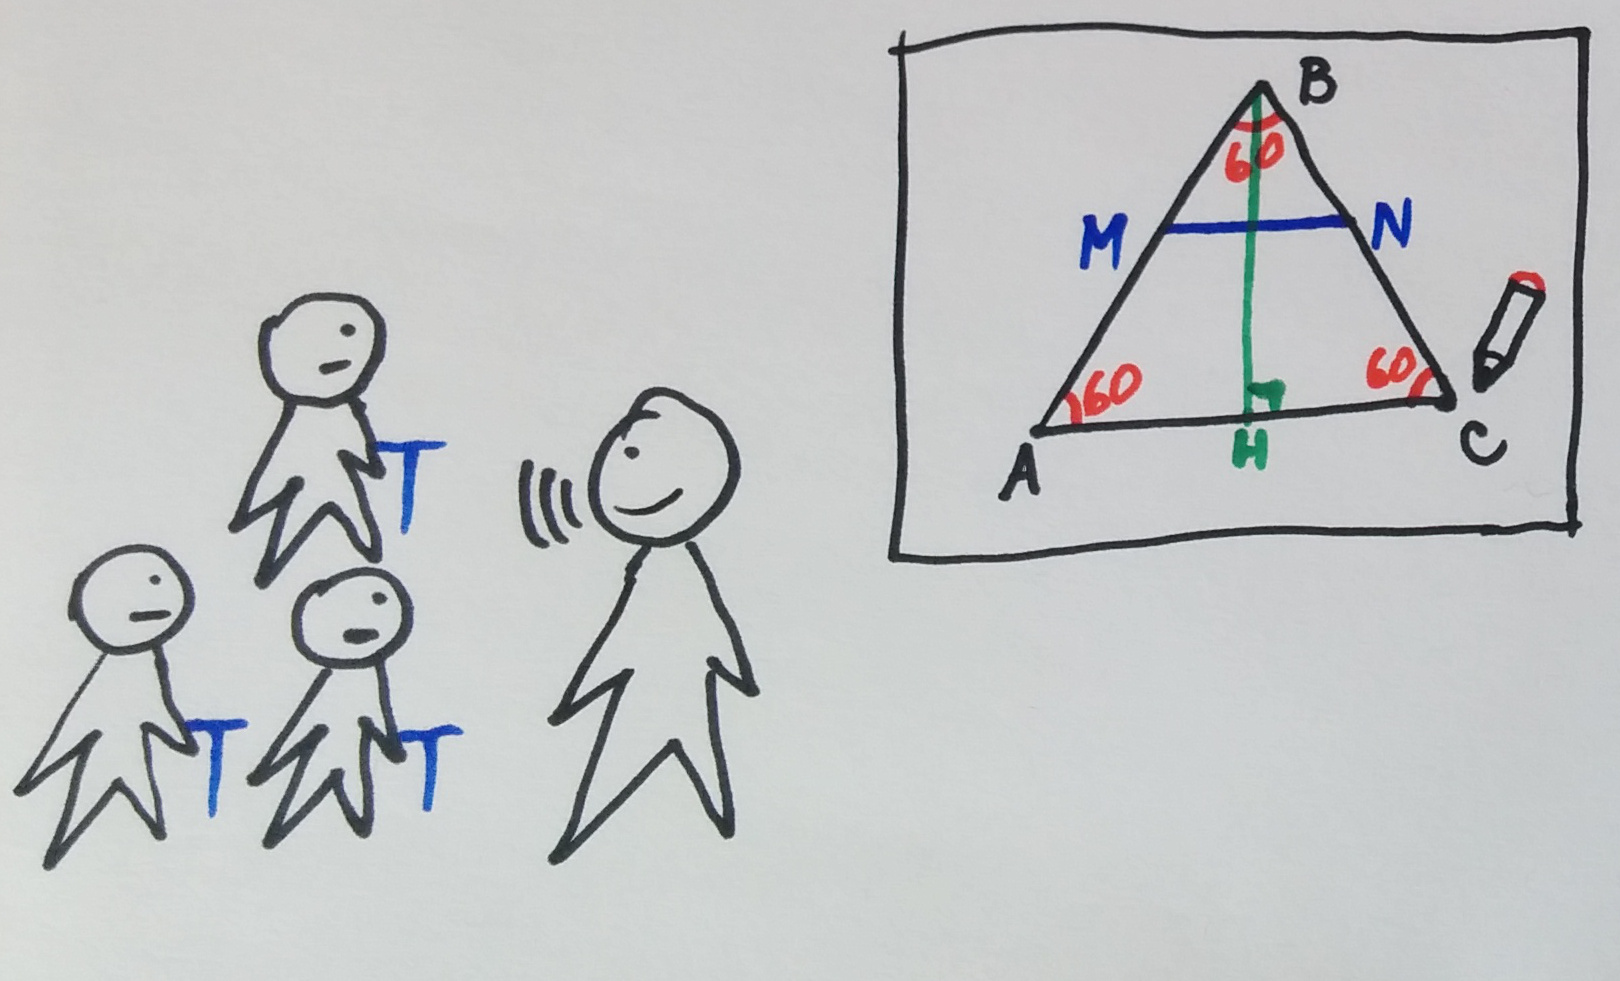 B
60
M N
60 60
A H C